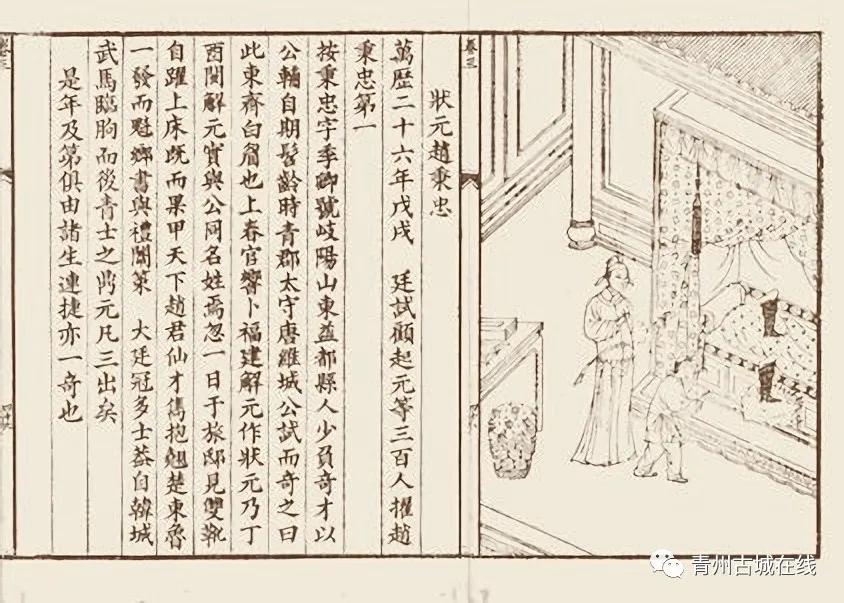 卷三
狀元趙秉忠
萬歷二十六年戊戌 廷試顧起元等三百人擢趙
秉忠第一
按秉忠字季卿號岐陽山東益都縣人少負奇才以
公輔自期髫齡時青郡太守唐維城公試而奇之曰
此東齊白眉也上春官響卜福建解元作狀元乃丁
酉閩解元實與公同名姓焉忽一日于旅邸見雙靴
自躍上床既而果甲天下趙君仙才雋抱翹楚東魯
一發而魁鄉書與禮闈策 大廷冠多士葢自韓城
武馬臨朐而後青士之鼎元凡三出矣
是年及第俱由諸生連捷亦一奇也
卷三
青州古城在线